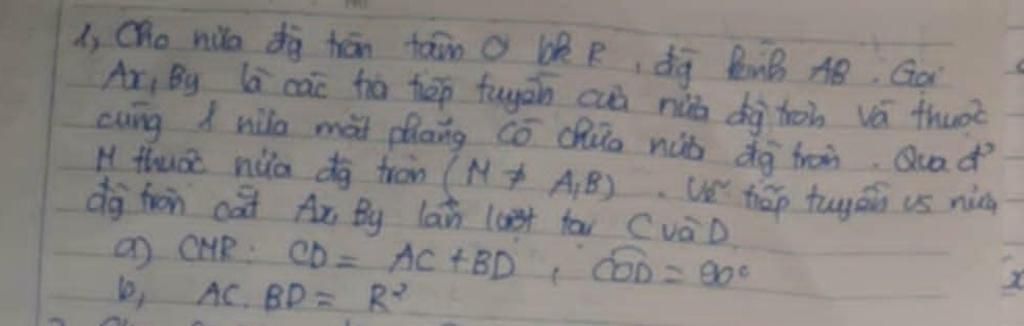 1, Cho nửa đg tròn tâm O bk R, đg kính AB. Gọi
Ax, By là các tia tiếp tuyến của nửa đg tròn và thuộc
cùng 1 nửa mặt phẳng có chứa nửa đg tròn. Qua đ'
M thuộc nửa đg tròn (M ≠ A,B). Vẽ tiếp tuyến vs nửa
đg tròn cắt Ax, By lần lượt tại C và D
a) CMR: CD = AC + BD, COD = 90°
b, AC.BD = R²